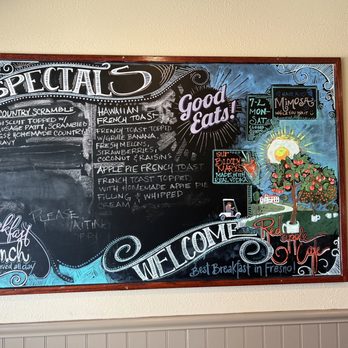 SPECIALS
COUNTRY SCRAMBLE
BISCUIT TOPPED W/
SAUSAGE PATTY, SCRAMBLED
HOMEMADE COUNTRY
HAWAIIAN
FRENCH TOAST
FRENCH TOAST TOPPED
W/ GRILLED BANANA
FRESH MELONS,
STRAWBERRIES,
COCONUT & RAISINS
APPLE PIE FRENCH TOAST
FRENCH TOAST TOPPED
WITH HOMEMADE APPLE PIE
FILLING & WHIPPED
CREAM
PLEASE
Good
Eats!
7-2
MON-
SAT.
MIMOSA'S
OUR
BLOODY
MARYS
MADE WITH
REAL VODKA
Breakfast
served all day
WELCOME
Cafe
Best Breakfast in Fresno!